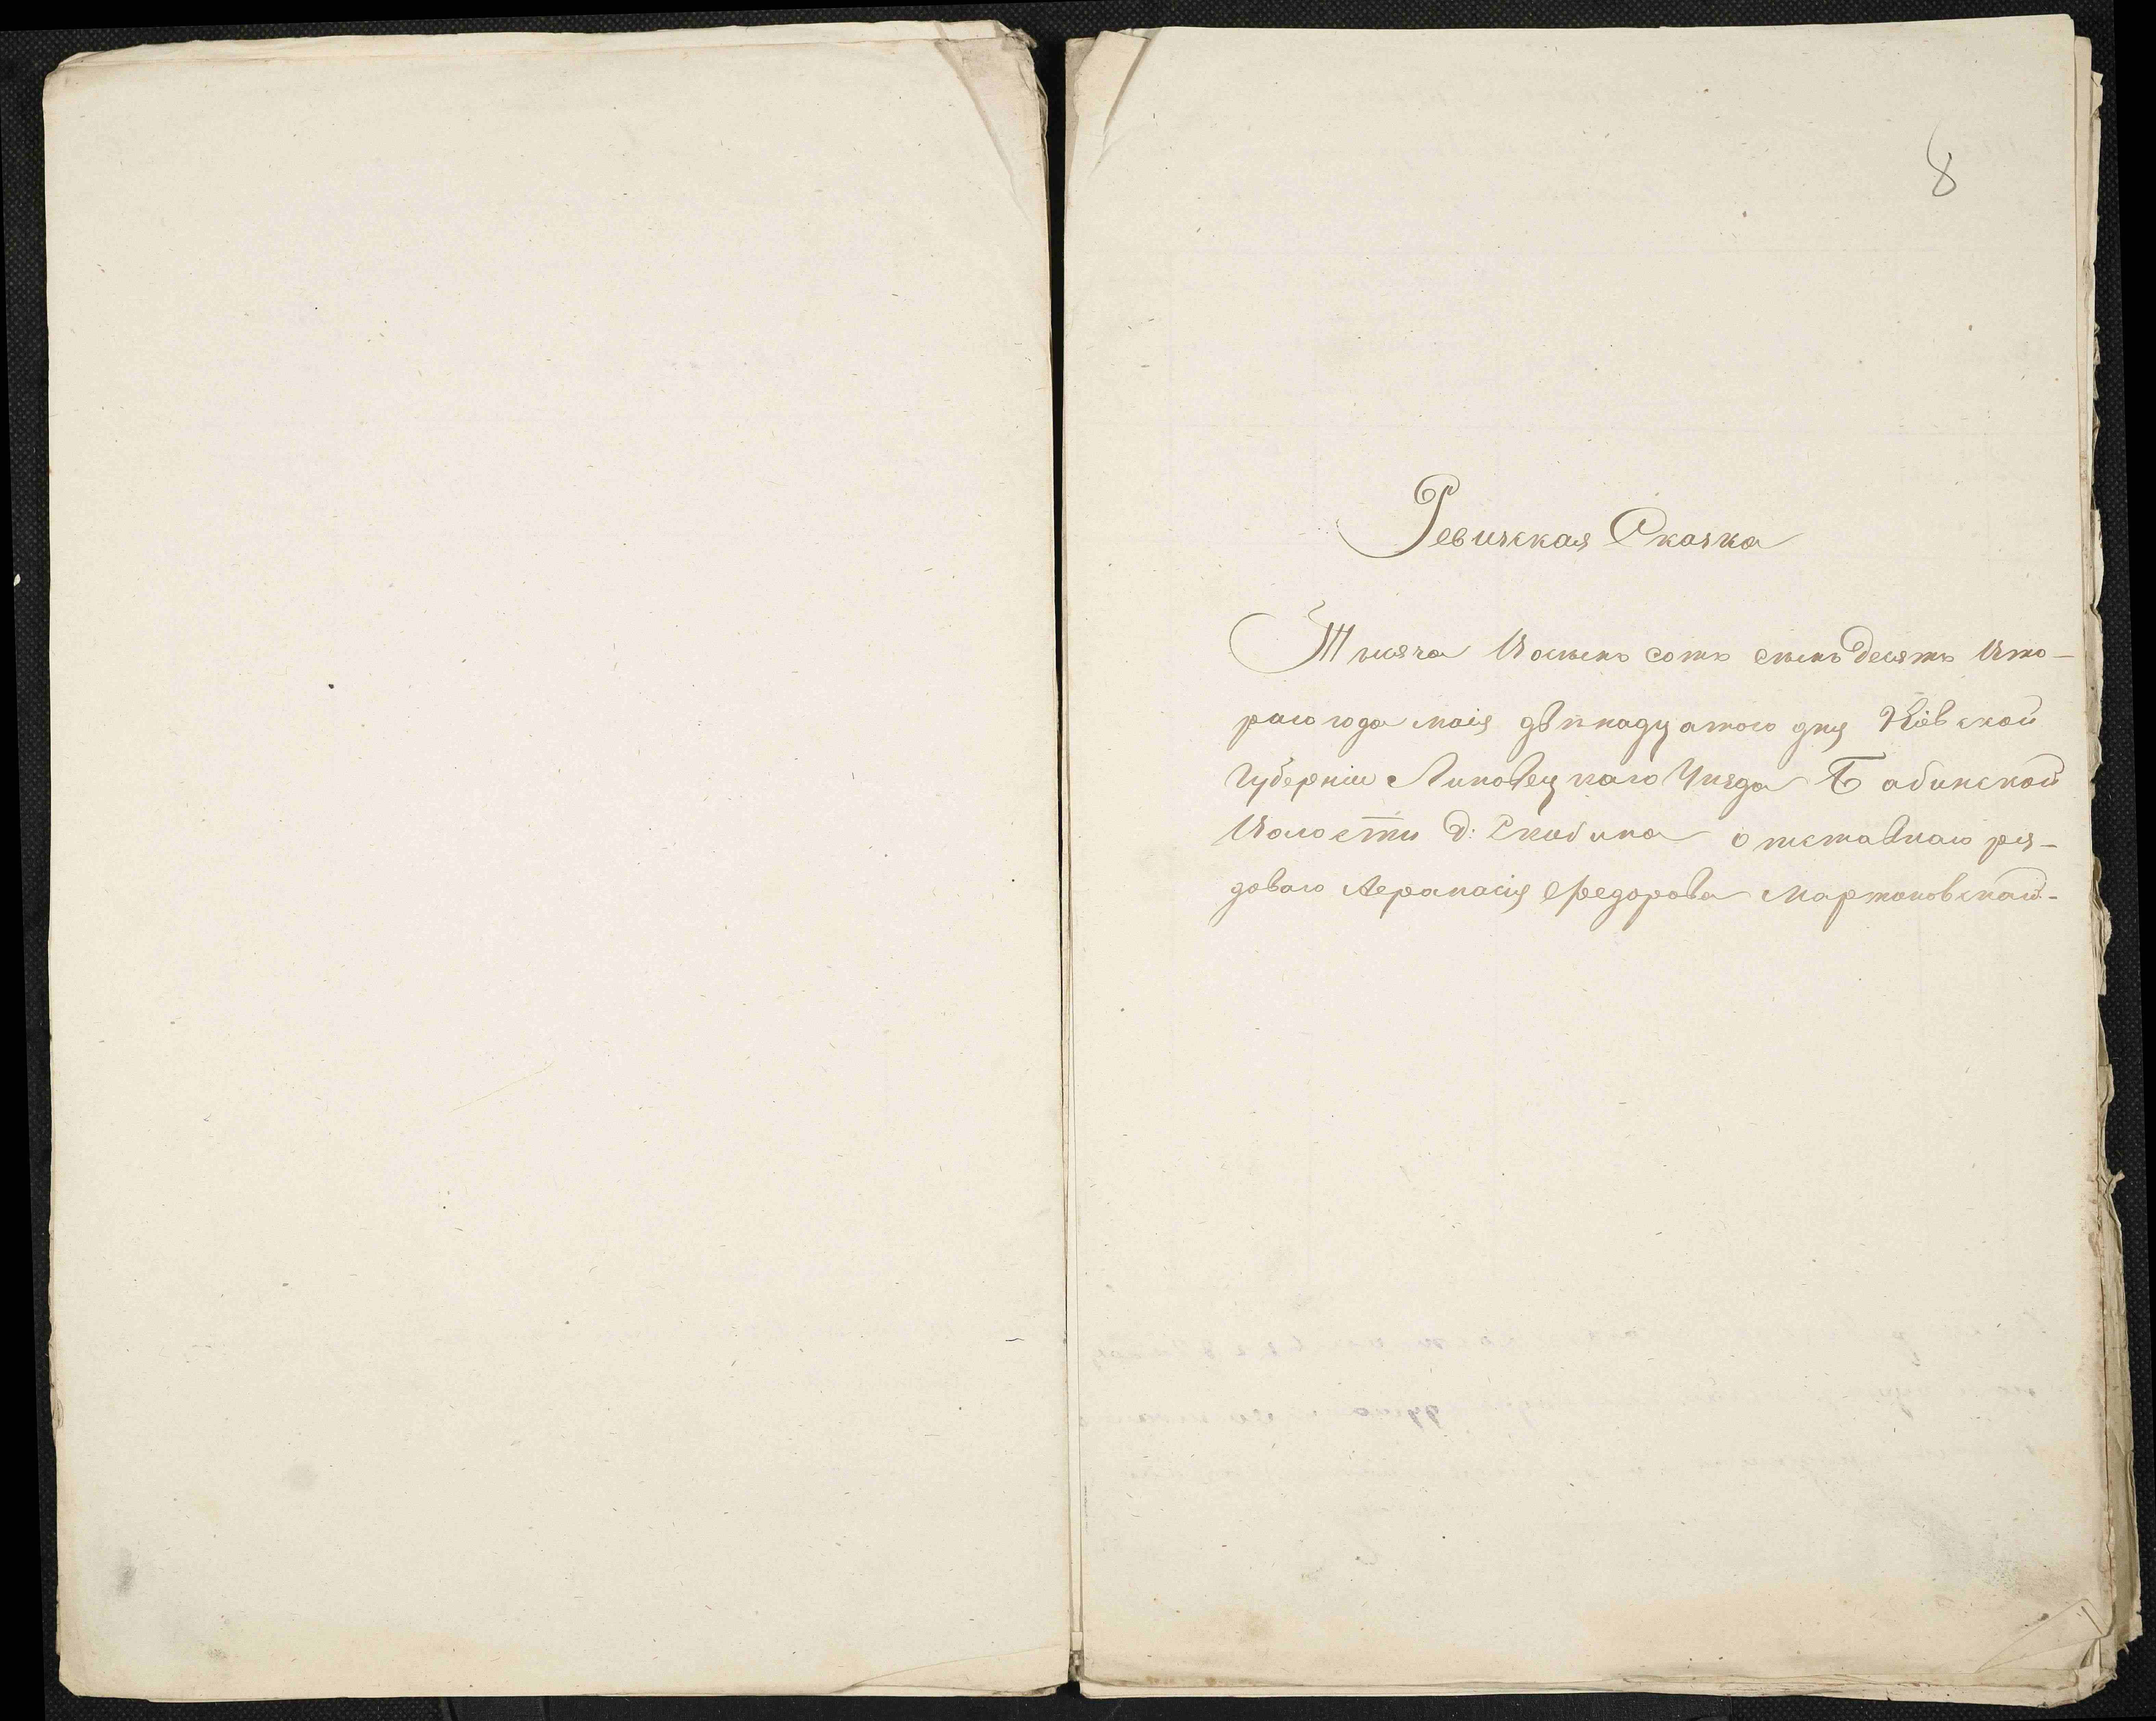 8
Ревизская Сказка
Тысяча Восемь сотъ семьдесятъ Вто-
раго года маія двѣнадцатого дня Кіевской
Губерніи Липовецкаго Уѣзда Бабинской
Волости д: Скибина отставнаго ря-
доваго Афанасія Федорова